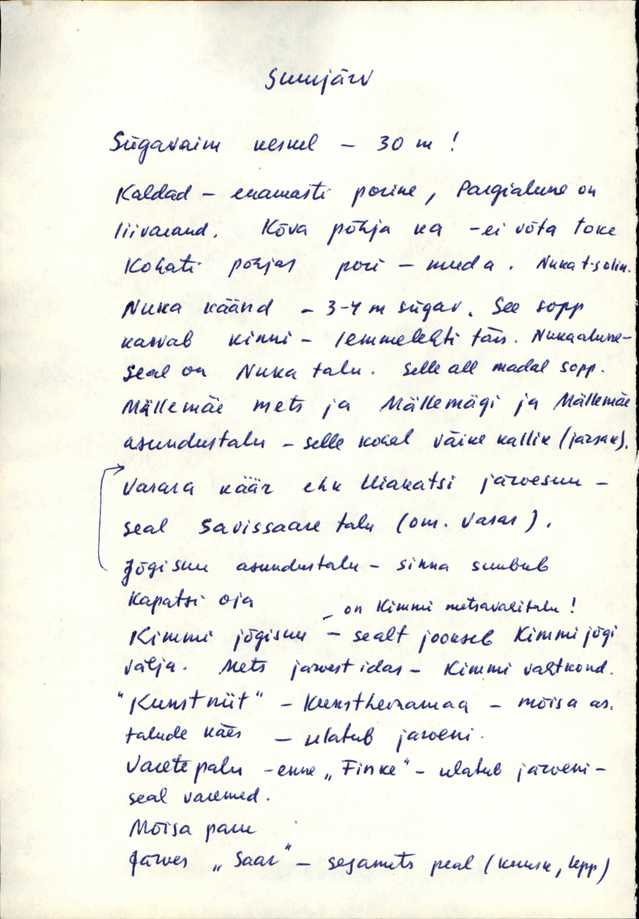 Suurjärv
Sügavaim keskel – 30 m !
Kaldad – enamasti porine, Pargialune on
liivarand. Kõva põhja ka – ei võta toke
Kohati põhjas pori – muda. Nuka t-s
Nuka käänd – 3-4 m sügav. See sopp
kasvab kinni – lemmelehti täis. Nukaalune –
seal on Nuka talu. Selle all madal sopp.
Mällemäe mets ja Mällemägi ja Mällemäe
asundustalu – selle kohal väike kallik (järsak).
Varara käär ehk järvesuu –
seal Savissaare talu (om. Varar).
Jõgisuu asundustalu – sinna suubub
Kapatsi oja
on Kimmi metsavahitalu !
Kimmi jõgisuu – sealt jookseb Kimmi jõgi
välja. Mets järvest idas – Kimmi vahtkond.
"Kunstniit" – Kunstheinamaa – mõisa as.
talude käes – ulatub järveni.
Varetepalu – enne „Finke" – ulatub järveni –
seal varemed.
Mõisa park
Järves „Saar" – segamets peal (kuusk, lepp)